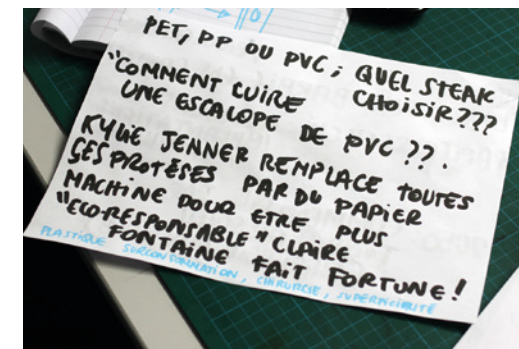 PET, PP OU PVC ; QUEL STEAK
CHOISIR ???
"COMMENT CUIRE
UNE ESCALOPE DE PVC ??.
KYLIE JENNER REMPLACE TOUTES
SES PROTÈSES PAR DU PAPIER
MACHINE POUR ETRE PLUS
"ECO-RESPONSABLE" CLAIRE
FONTAINE FAIT FORTUNE !
PLASTIQUE SURCONSOMMATION, CHIRURGIE, SUPERFICIALITÉ